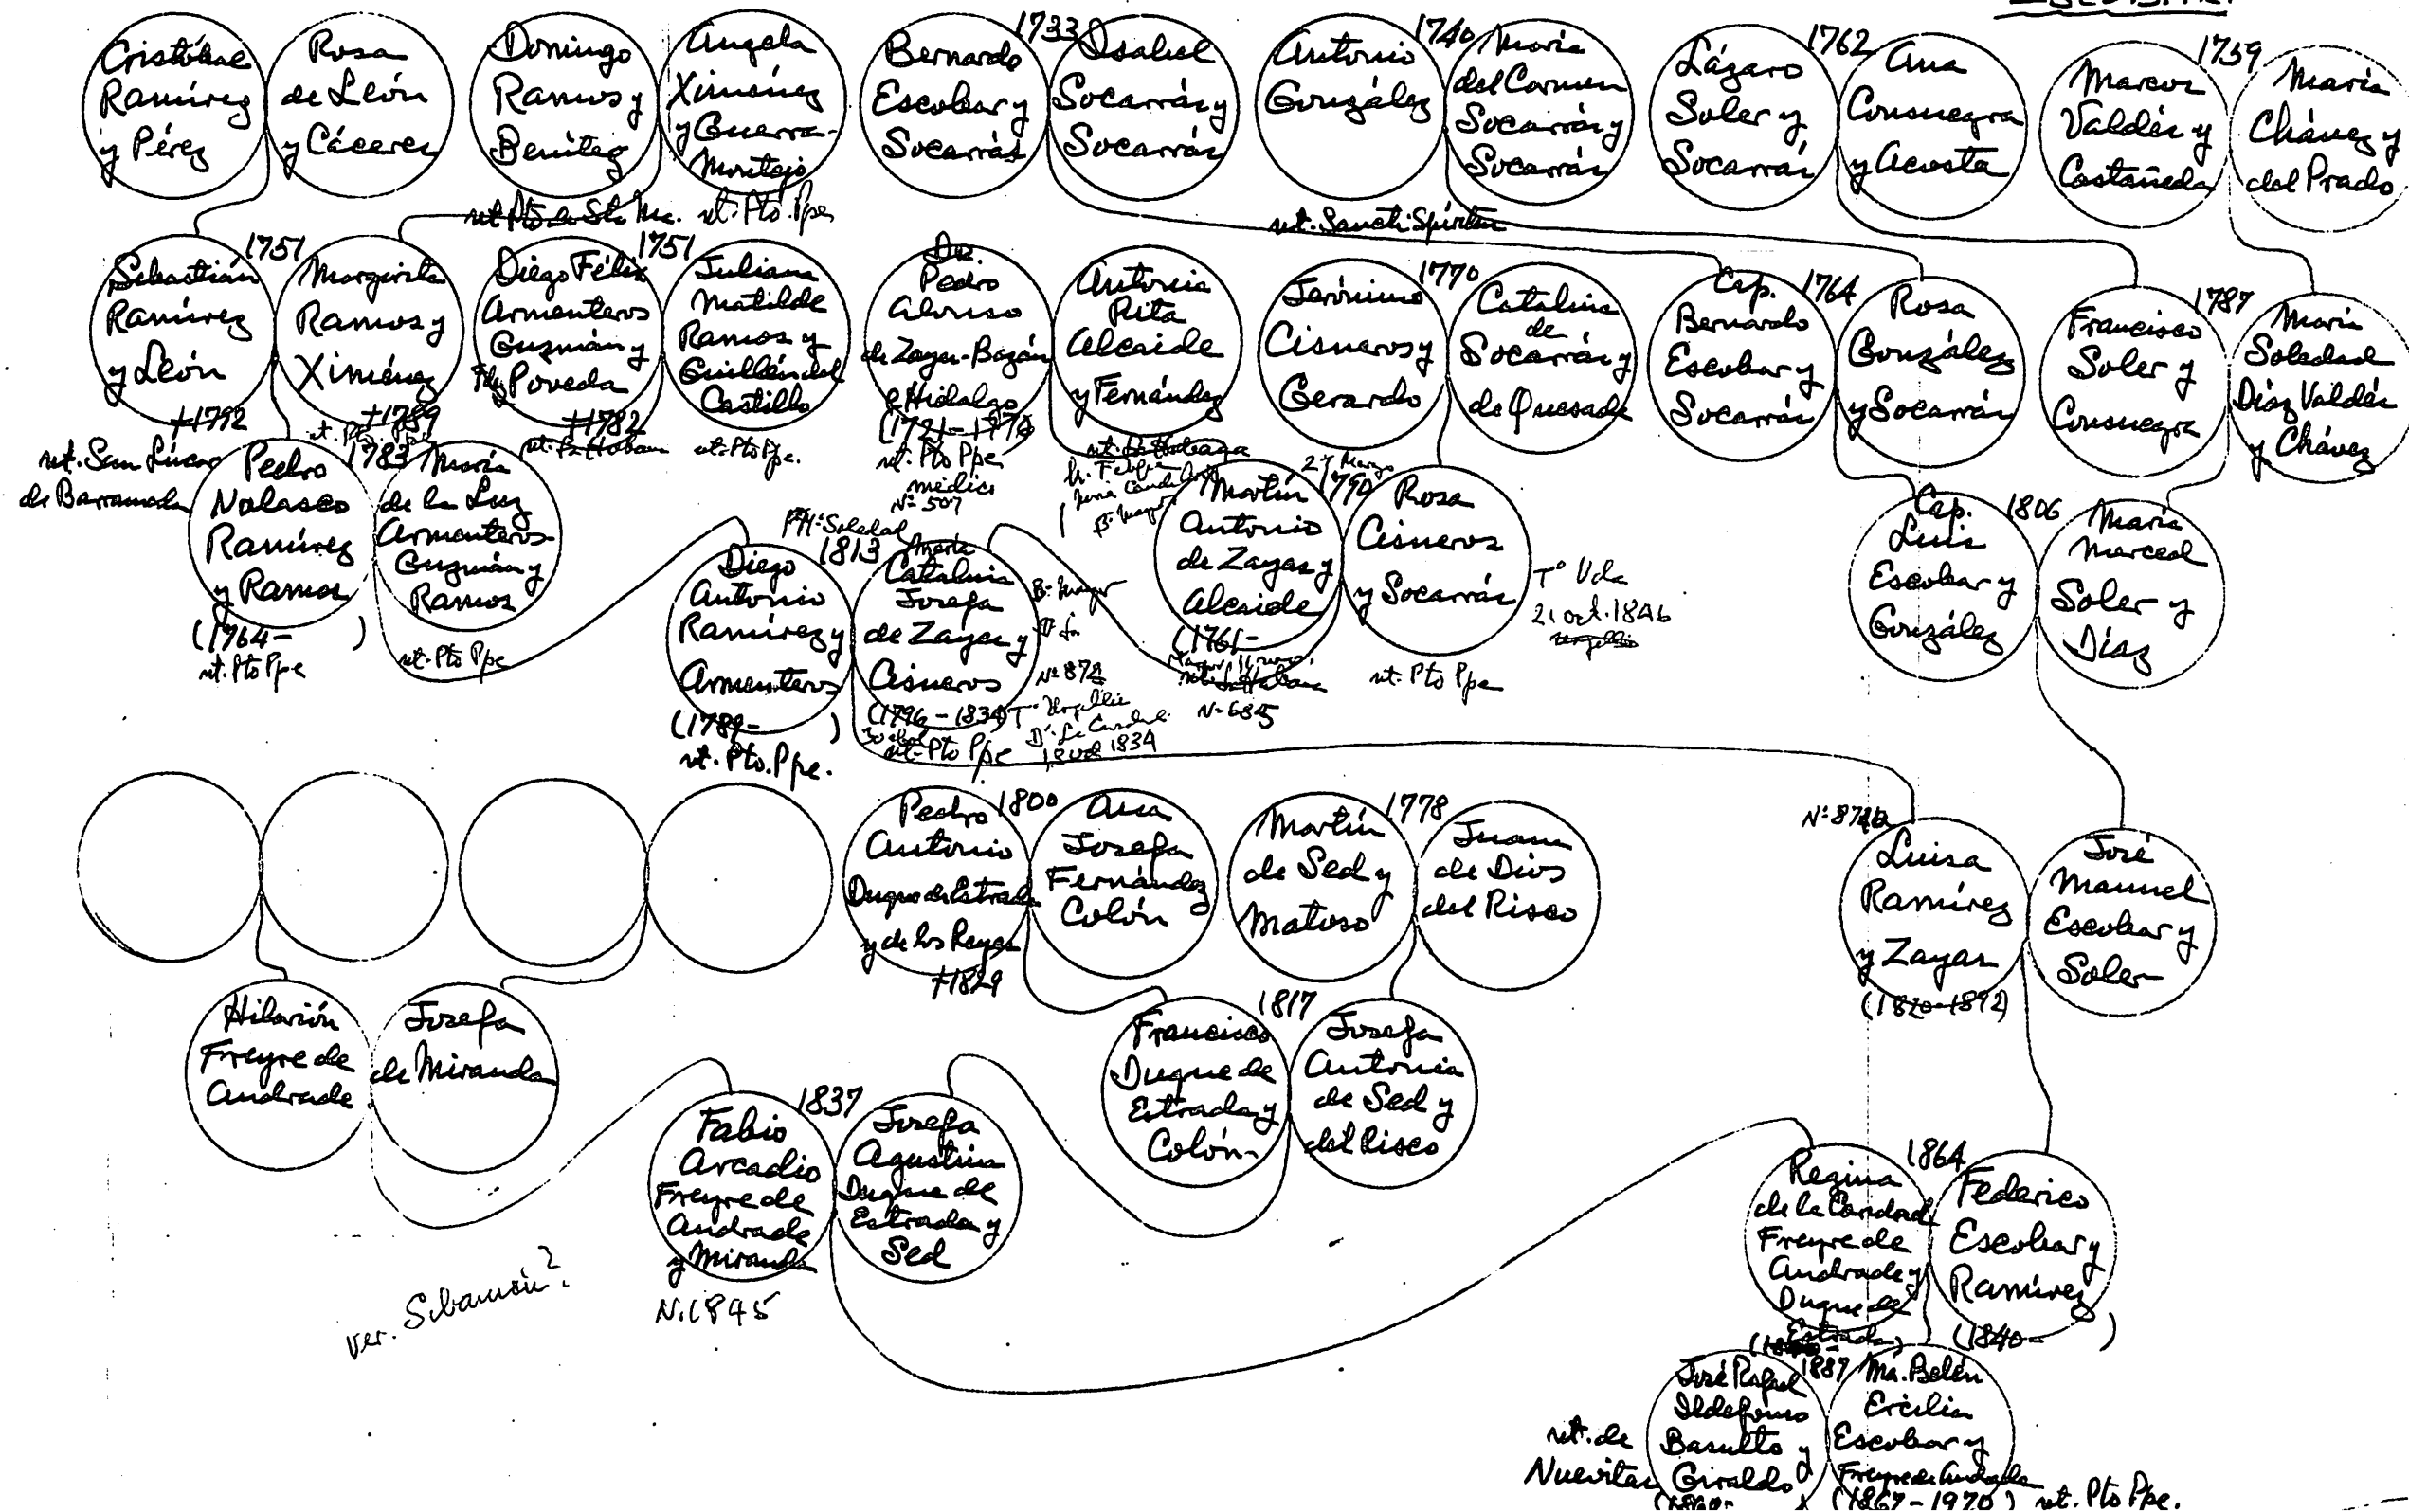 Cristóbal
Ramírez
y Pérez
Rosa
de León
y Cáceres
Domingo
Ramos y
Benítez
Angela
Ximénez
y Guerra-
Montejo
nt. Pto. Ppe.
Bernardo
Escobar y
Socarrás
1733
Isabel
Socarrás y
Socarrás
Antonio
González
1740
María
del Carmen
Socarrás y
Socarrás
nt. Sancti-Spíritus
Lázaro
Soler y
Socarrás
1762
Ana
Consuegra
y Acosta
Marcos
Valdés y
Castañeda
1759
María
Chávez y
del Prado
Sebastián
Ramírez
y León
†1792
nt. San Lúcar
de Barrameda
1751
Margarita
Ramos y
Ximénez
†1789
Diego Félix
Armenteros
Guzmán y
Poveda
†1782
1751
Juliana
Matilde
Ramos y
Guillén del
Castillo
nt. Pto Ppe.
Dr.
Pedro
Alonso
de Zayas-Bazán
e Hidalgo
nt. Pto Ppe
médico
Nº 507
Antonia
Rita
Alcaide
y Fernández
Jerónimo
Cisneros y
Gerardo
1770
Catalina
de
Socarrás y
de Quesada
Cap.
Bernardo
Escobar y
Socarrás
1764
Rosa
González
y Socarrás
Francisco
Soler y
Consuegra
1787
María
Soledad
Díaz Valdés
y Chávez
Pedro
Nolasco
Ramírez
y Ramos
(1764- )
nt. Pto Ppe
1783
María
de la Luz
Armenteros-
Guzmán y
Ramos
nt. Pto Ppe
Diego
Antonio
Ramírez y
Armenteros
(1789- )
nt. Pto. Ppe.
1813
María
Catalina
Josefa
de Zayas y
Cisneros
(1796-1834)
nt. Pto Ppe
Nº 872
Martín
Antonio
de Zayas y
Alcaide
(1761-
N-685
27 Marzo
1790
Rosa
Cisneros
y Socarrás
nt. Pto Ppe
Tº Vda
21 oct. 1846
Cap.
Luis
Escobar y
González
1806
María
Merced
Soler y
Díaz
Pedro
Antonio
Duque de Estrada
y de los Reyes
†1829
1800
Ana
Josefa
Fernández
Colón
Martín
de Sed y
Matoso
1778
Juana
de Dios
del Risco
Luisa
Ramírez
y Zayas
(1820-1892)
José
Manuel
Escobar y
Soler
Hilarión
Freyre de
Andrade
Josefa
de Miranda
Francisco
Duque de
Estrada y
Colón
1817
Josefa
Antonia
de Sed y
del Risco
Fabio
Arcadio
Freyre de
Andrade
y Miranda
N. 1845
1837
Josefa
Agustina
Duque de
Estrada y
Sed
ver. Sibanicú?
Regina
de la Caridad
Freyre de
Andrade y
Duque de
Estrada
1864
Federico
Escobar y
Ramírez
(1840- )
José Rafael
Ildefonso
Basulto y
Giraldo
(1860-
nt. de
Nuevitas
1887
Ma. Belén
Ercilia
Escobar y
Freyre de Andrade
(1867-1970)
nt. Pto Ppe.